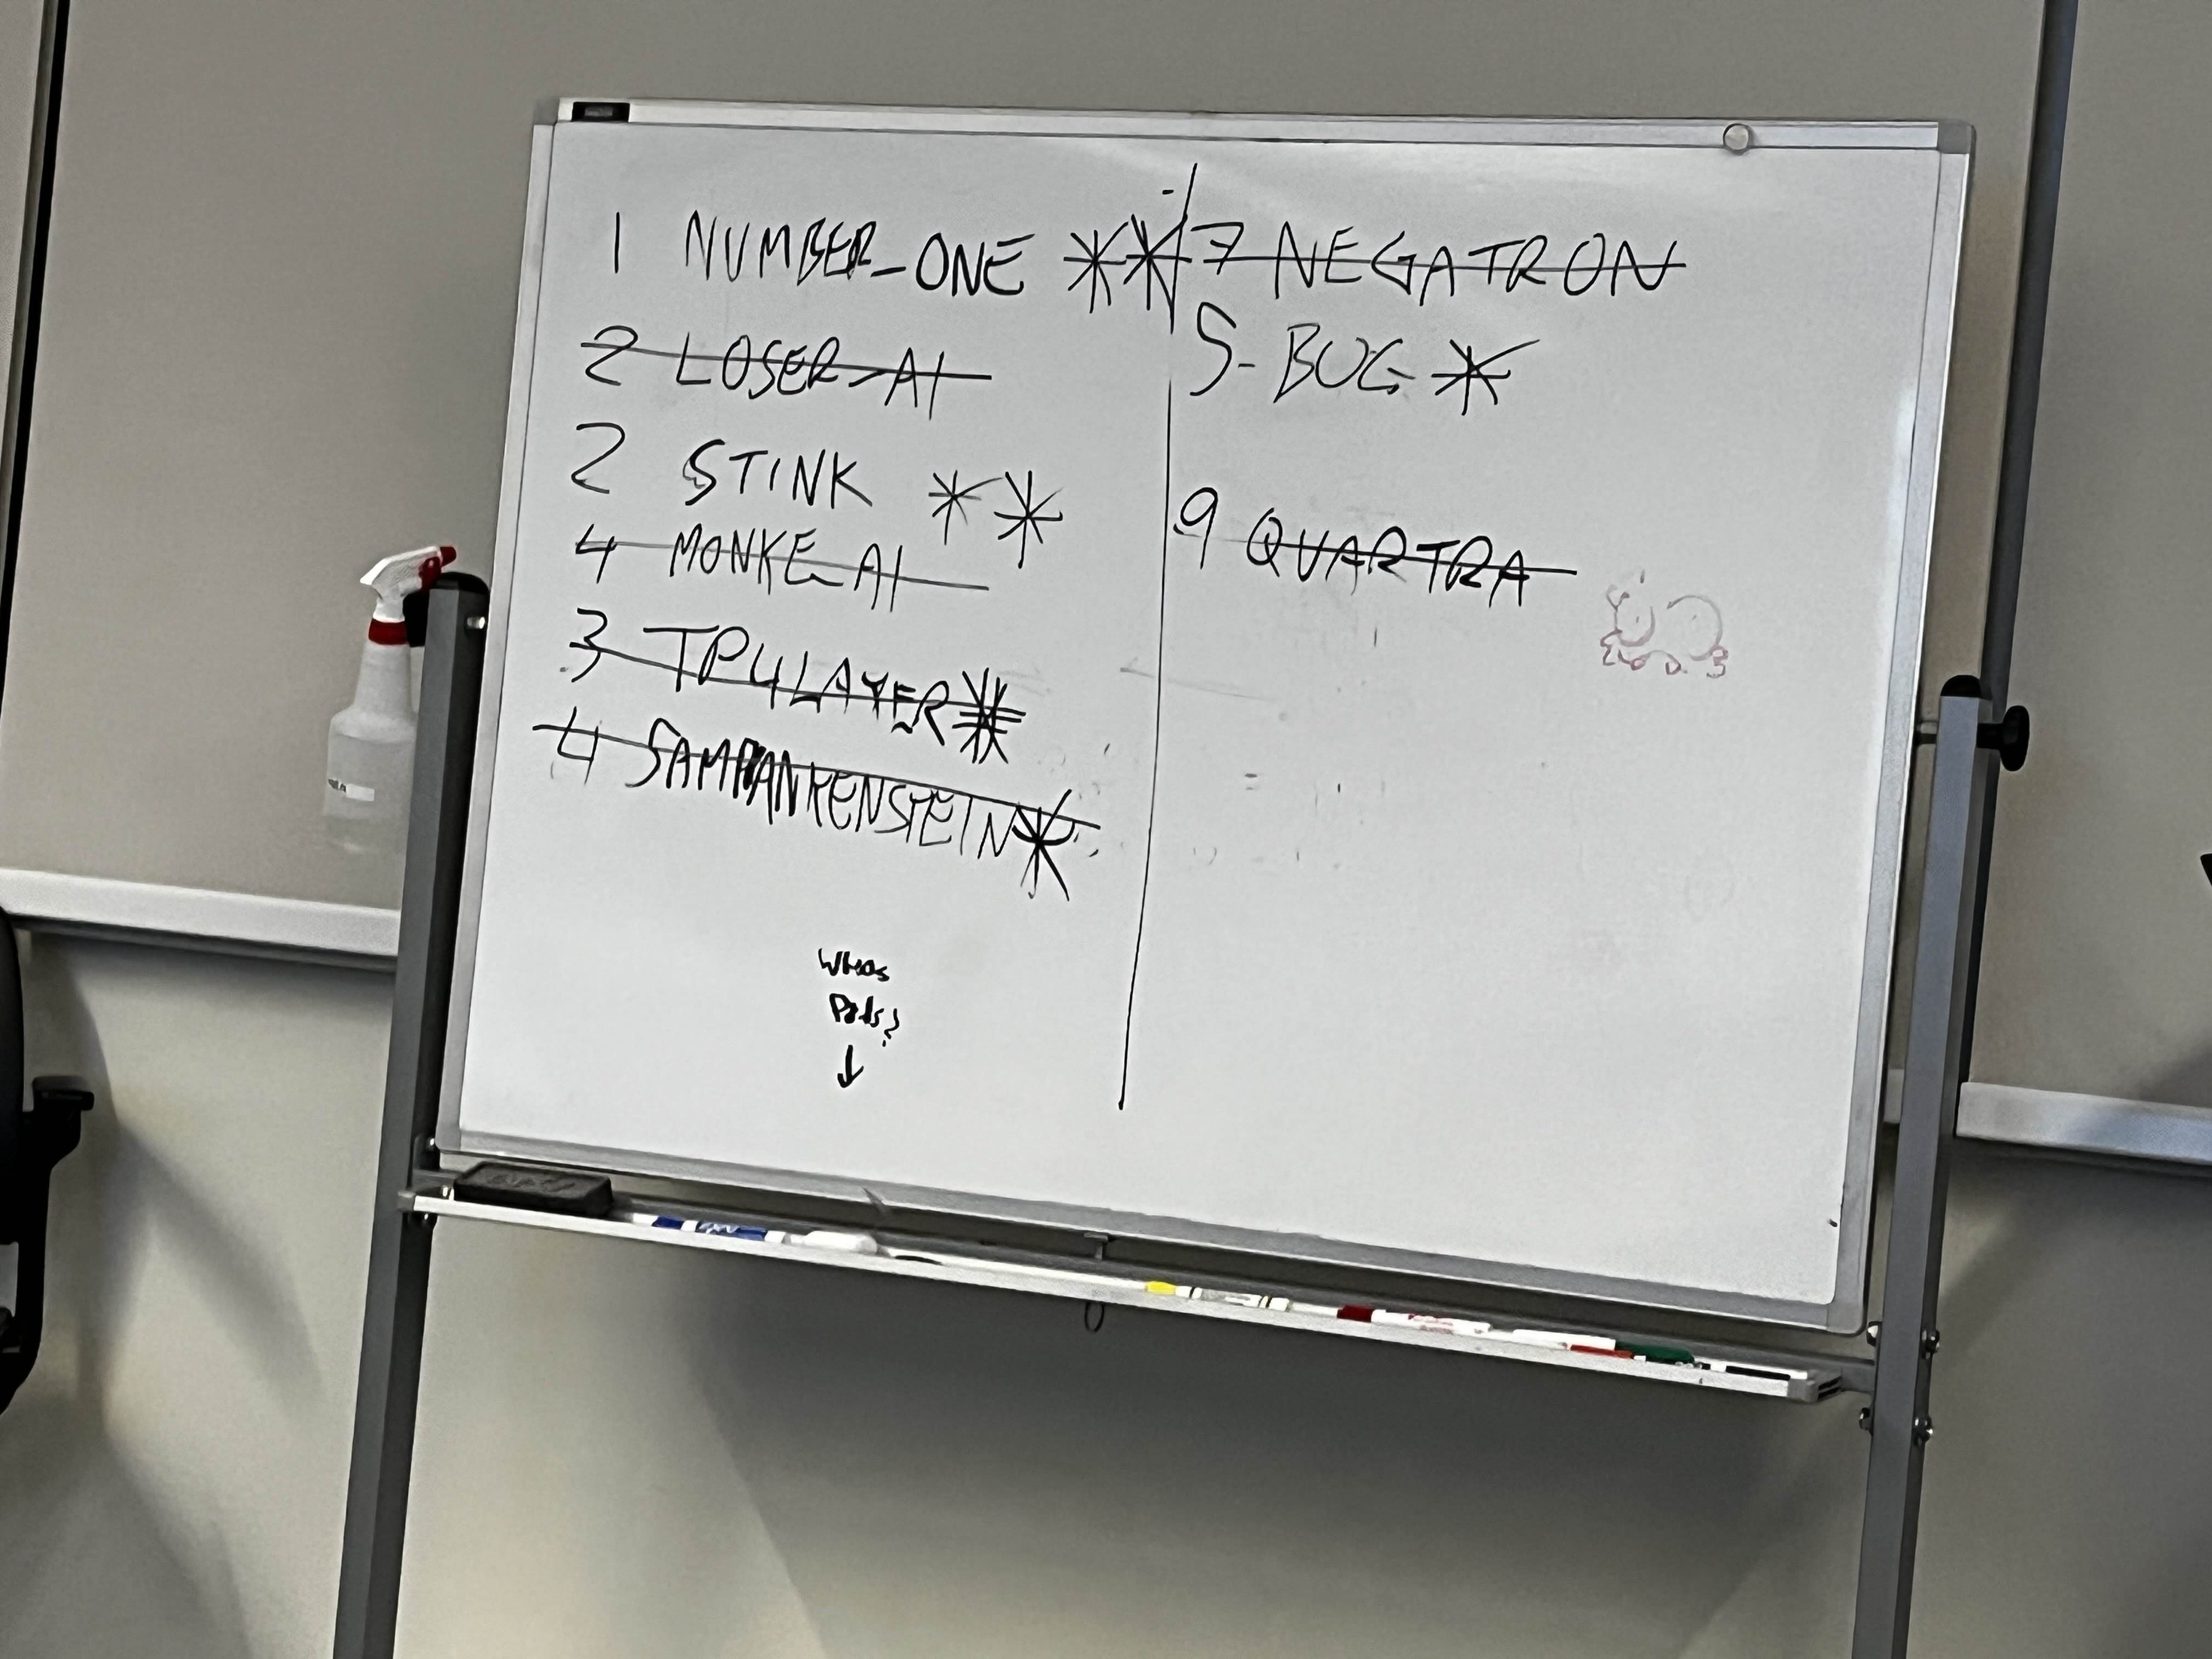 1 NUMBER_ONE **
2 LOSER_AI
2 STINK **
4 MONKE_AI
3 TP4LAYER*
4 SAMBANKENSTEIN*
7 NEGATRON
5- BUG *
9 QUARTRA
↓